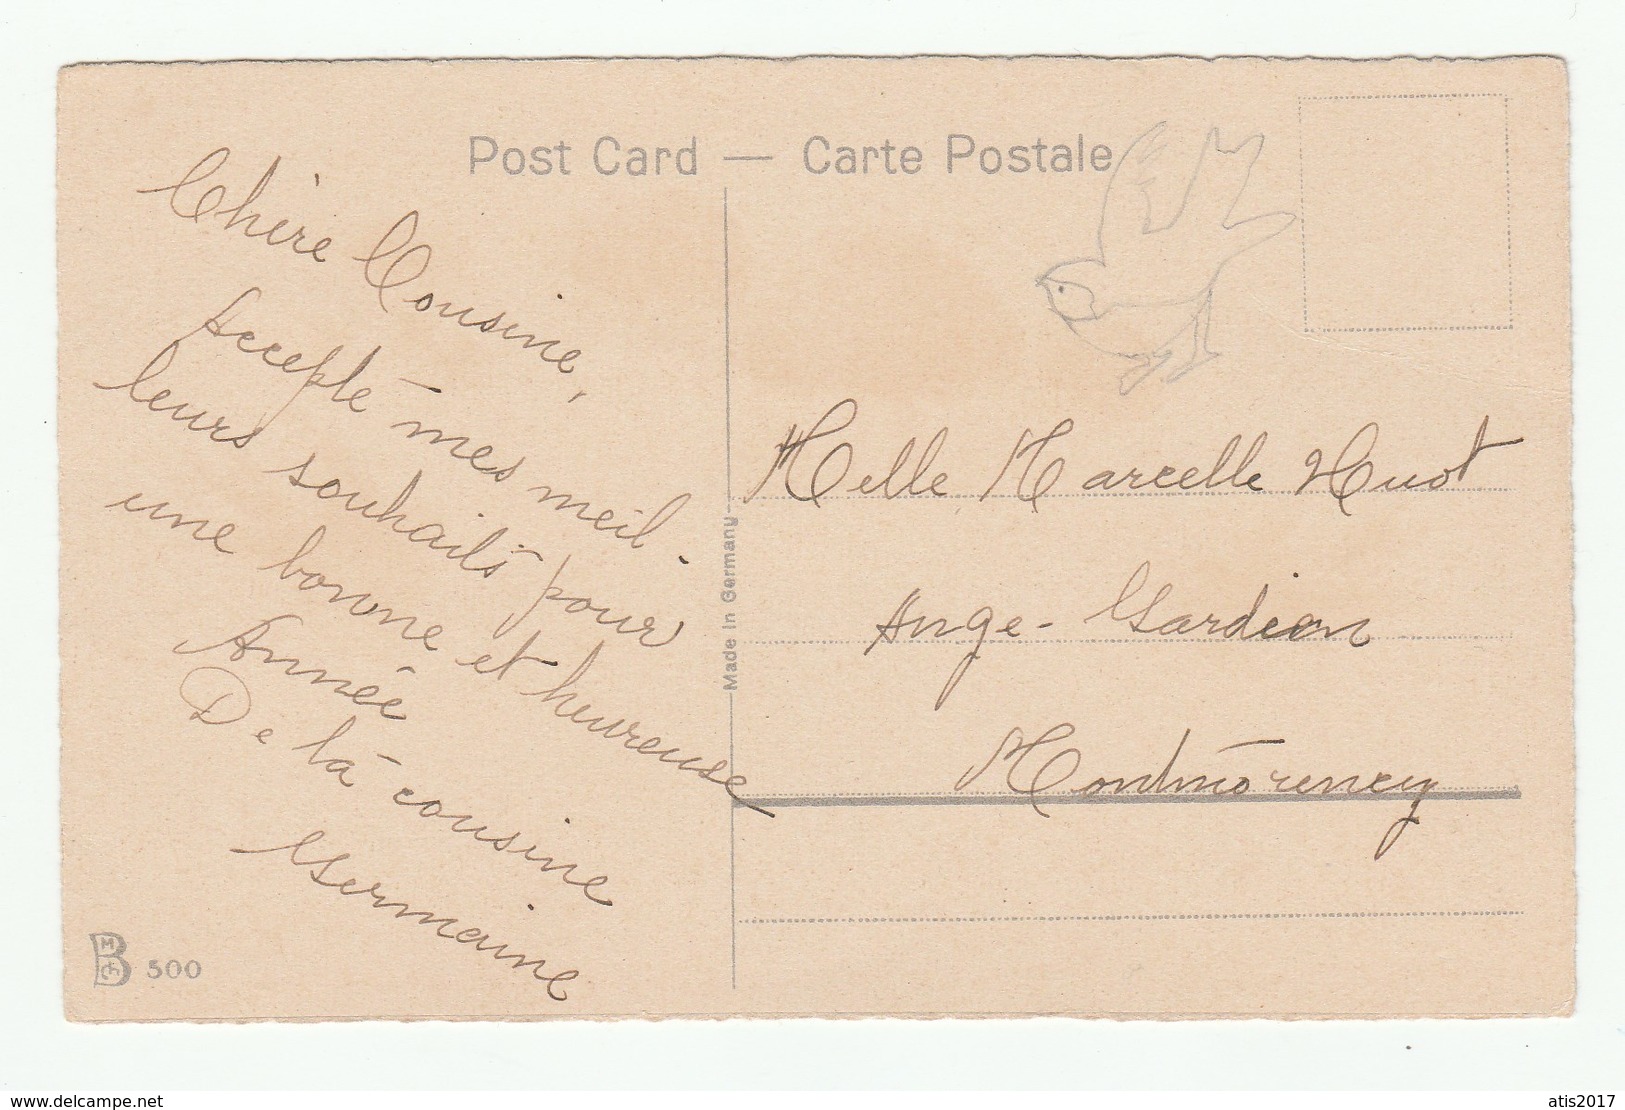 Post Card — Carte Postale
Chère Cousine,
Accepte mes meil-
leurs souhaits pour
une bonne et heureuse
Année
De ta cousine
Germaine
B M ch 500
Made in Germany
Melle Marcelle Huot
Ange-Gardien
Montmorency
www.delcampe.net
atis2017